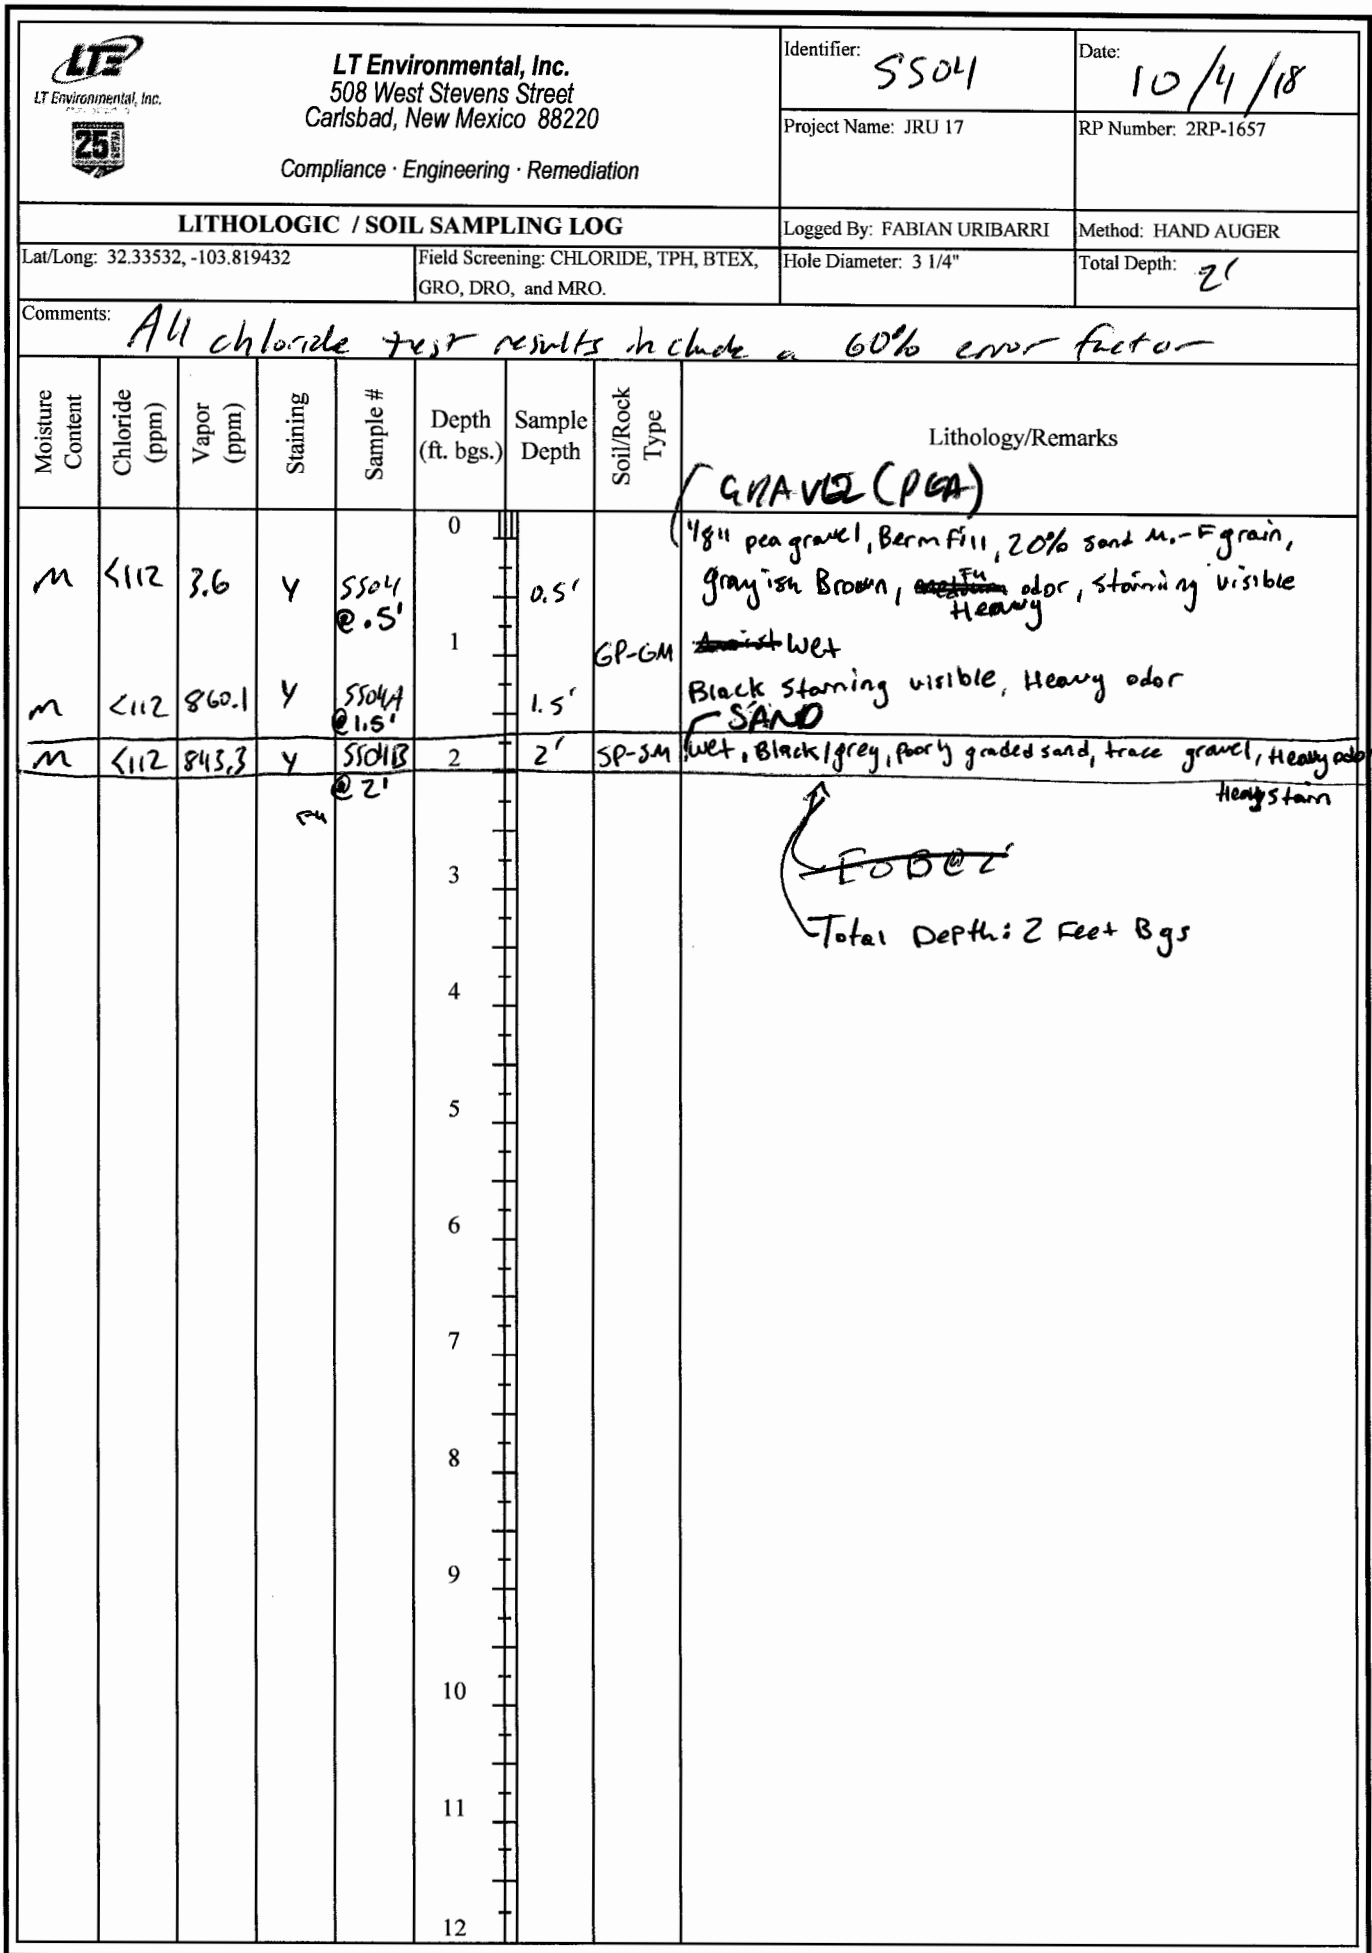 LTE
LT Environmental, Inc.
25 YEARS
LT Environmental, Inc.
508 West Stevens Street
Carlsbad, New Mexico 88220
Compliance · Engineering · Remediation
Identifier: SS04
Date: 10/4/18
Project Name: JRU 17
RP Number: 2RP-1657
LITHOLOGIC / SOIL SAMPLING LOG
Logged By: FABIAN URIBARRI
Method: HAND AUGER
Lat/Long: 32.33532, -103.819432
Field Screening: CHLORIDE, TPH, BTEX,
GRO, DRO, and MRO.
Hole Diameter: 3 1/4"
Total Depth: 2'
Comments: All chloride test results include a 60% error factor
Moisture Content
Chloride (ppm)
Vapor (ppm)
Staining
Sample #
Depth (ft. bgs.)
Sample Depth
Soil/Rock Type
Lithology/Remarks
GRAVEL (PEA)
0
1/8" pea gravel, Berm Fill, 20% sand M.-F grain,
M <112 3.6 Y SS04 @ .5' 0.5' grayish Brown, medium FU Heavy odor, staining visible
1 GP-GM wet
M <112 860.1 Y SS04A @ 1.5' 1.5' Black Staining visible, Heavy odor
SAND
M <112 843.3 Y SS04B @ 2' 2 2' SP-SM wet, Black/grey, poorly graded sand, trace gravel, Heavy odor
Heavy Stain
FU
EOB @ 2'
3
Total Depth: 2 Feet Bgs
4
5
6
7
8
9
10
11
12